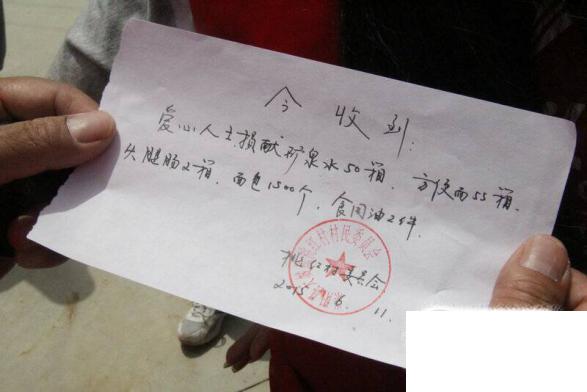 今收到：
爱心人士捐献矿泉水50箱、方便面55箱、
火腿肠2箱、面包1500个、食用油2件.
桃红村委员会
2015.6.11.
红村村民委员会